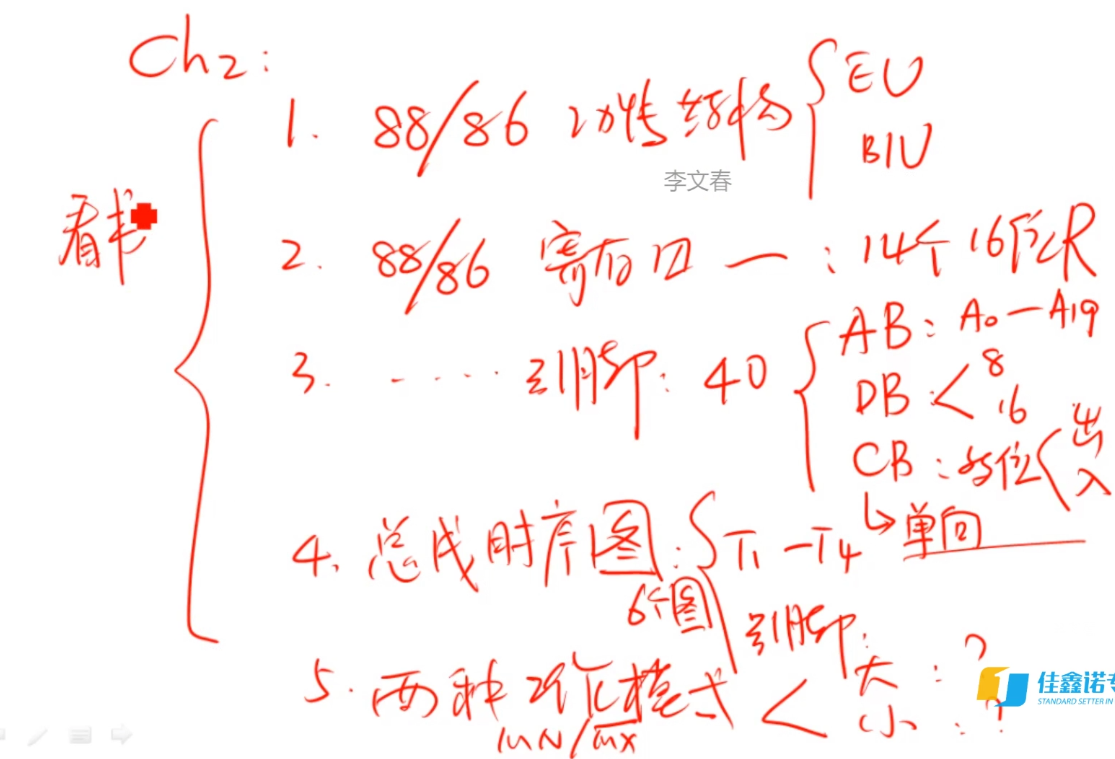 Ch2:
看书
1. 88/86 功能结构 { EU
BIU
李文春
2. 88/86 寄存器 — : 14个16位R
3. ····· 引脚: 40 { AB: A0—A19
DB: < 8
16
CB: 每位 < 出
入
↳ 单向
4. 总线时序图: { T1—T4
6个图
引脚:
5. 两种工作模式 < 大: ?
小: ?
MN/MX
佳鑫诺专
STANDARD SETTER IN